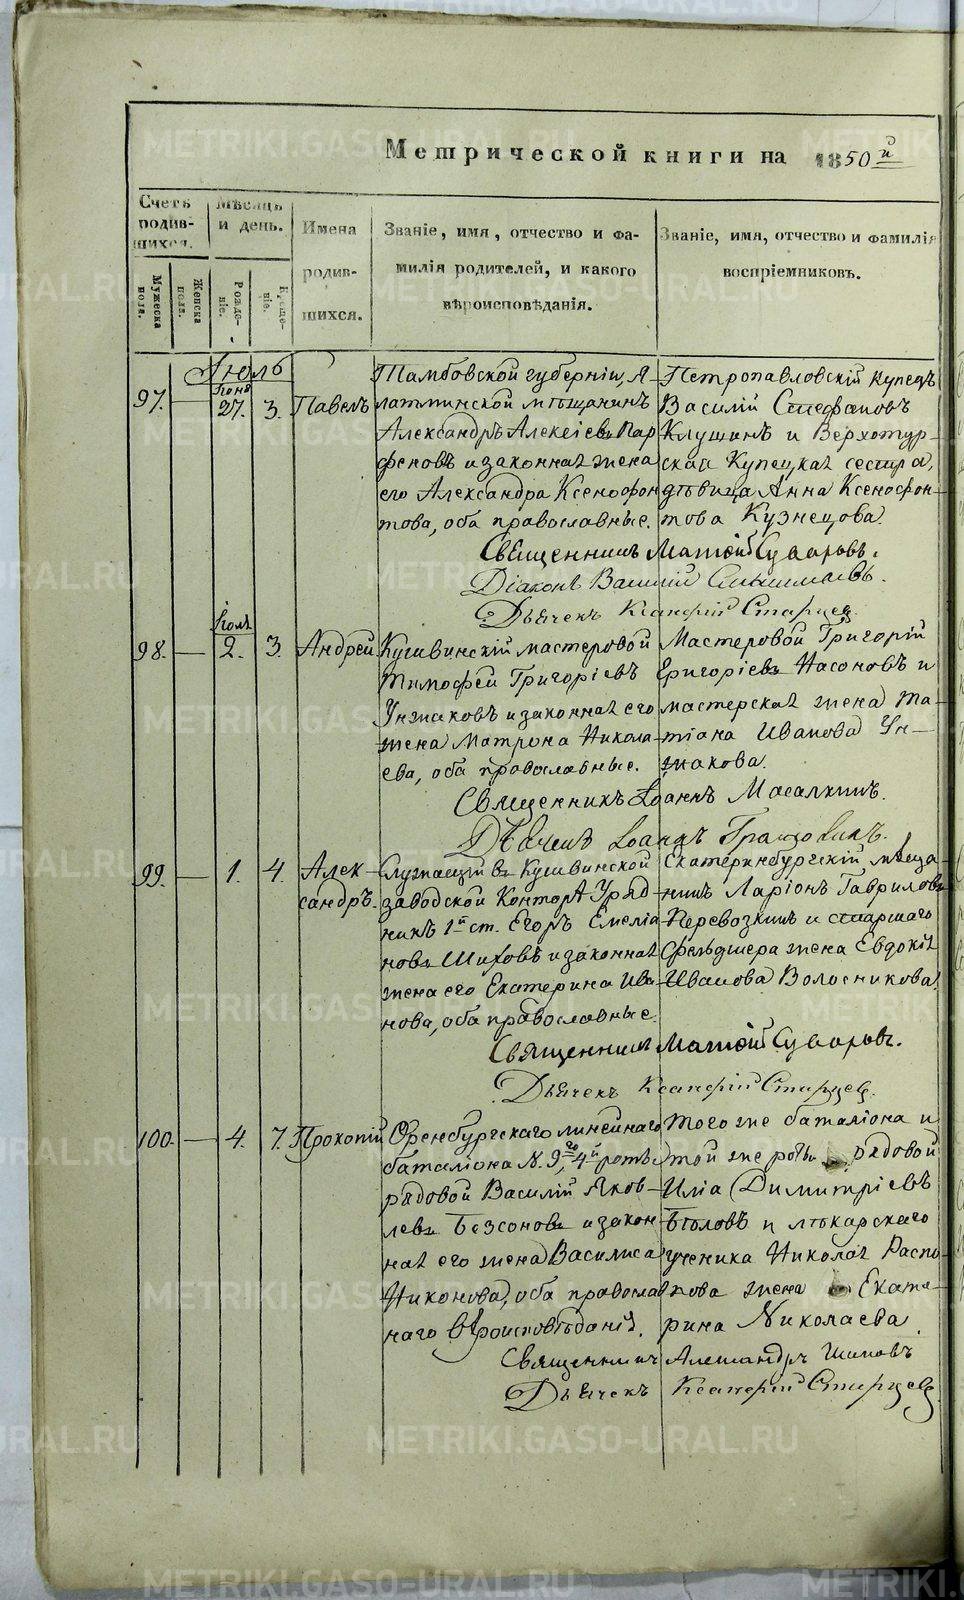 Метрической книги на 1850й
Счетъ родив-шихся.
Мѣсяцъ и день.
Имена родив-шихся.
Званіе, имя, отчество и фа-
милія родителей, и какого
вѣроисповѣданія.
Званіе, имя, отчество и фамилія
воспріемниковъ.
Мужеска пола.
Женска пола.
Рожде-ніе.
Креще-ніе.
Іюль
97. — Іюня 27. 3. Павелъ
Тамбовской губерніи, А-
латминской мѣщанинъ
Александръ Алексіевъ Пар
феновъ и законная жена
его Александра Ксенофон
това, оба православные.
Петропавловскій купецъ
Василій Стефановъ
Клушинъ и Верхотур-
ская купецкая сестра,
дѣвица Анна Ксенофон-
това Кузнецова.
Священникъ Матѳій Суворовъ.
Діаконъ Василій
Дьячекъ Ксанфій Старцев
98. — Іюль 2. 3. Андрей
Кушвинскій мастеровой
Тимофей Григоріевъ
Унжаковъ и законная его
жена Матрона Никола-
ева, оба православные.
Мастеровой Григорій
Григоріевъ Насоновъ и
мастерская жена Та-
тіана Иванова Ун-
жакова.
Священникъ Іоаннъ Масалкинъ.
Дьячекъ Іоаннъ
99. — 1. 4. Алек-
сандръ.
Служащій въ Кушвинской
заводской Конторѣ Уряд-
никъ 1й ст. Егоръ Емеліа-
новъ Шиховъ и законная
жена его Екатерина Ива-
нова, оба православные.
Екатеринбургскій мѣща
нинъ Ларіонъ Гавриловъ
Перевозкинъ и старшаго
фельдшера жена Евдокія
Иванова Волосникова.
Священникъ Матѳій Суворовъ.
Дьячекъ Ксанфій Старцев.
100. — 4. 7. Прокопій
Оренбургскаго линейнаго
баталіона N. 9го, 4й роты
рядовой Василій Яков-
левъ Безсоновъ и закон
ная его жена Василиса
Никонова, оба православ
наго вѣроисповѣданія.
Того же баталіона и
той же роты рядовой
Иліа Димитріевъ
Бѣловъ и лѣкарскаго
ученика Николая Распо-
пова жена Екате-
рина Николаева.
Священникъ Александръ Шиховъ
Дьячекъ Ксанфій Старцев
METRIKI.GASO-URAL.RU